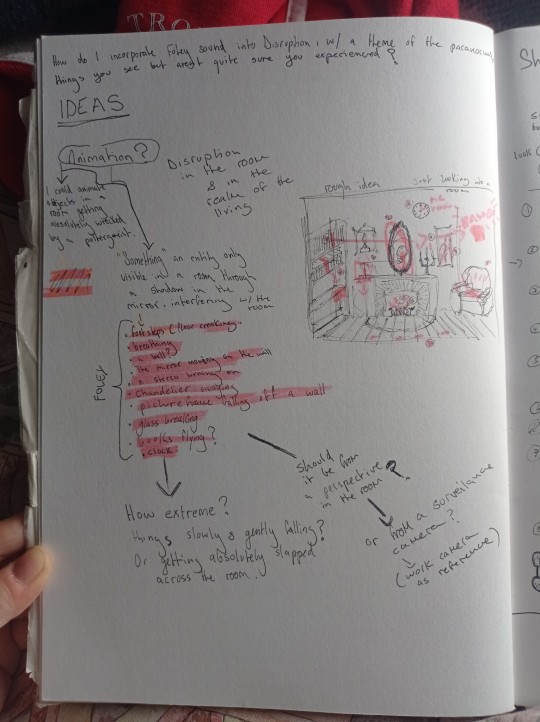 TRO
How do I incorporate Foley sound into Disruption, w/ a theme of the paranormal
things you see but aren't quite sure you experienced?
IDEAS
Animation?
I could animate
objects in a
room getting
absolutely wrecked
by a poltergeist.
Disruption
in the room
& in the
realm of the
living
"Something" an entity only
visible in a room through
a shadow in the
mirror. interfering w/ the
room
FOLEY
• footsteps (floor creaking)
• breathing
• a bell?
• the mirror moving on the wall
• a stereo turning on
• chandelier swinging
• picture frame falling off a wall
• glass breaking
• books flying?
• clock
rough idea
Just looking into a
room
How extreme?
things slowly & gently falling?
Or getting absolutely slapped
across the room.
Should
it be from
a perspective
in the room?
or from a surveilance
camera?
(work camera
as reference)
Sh